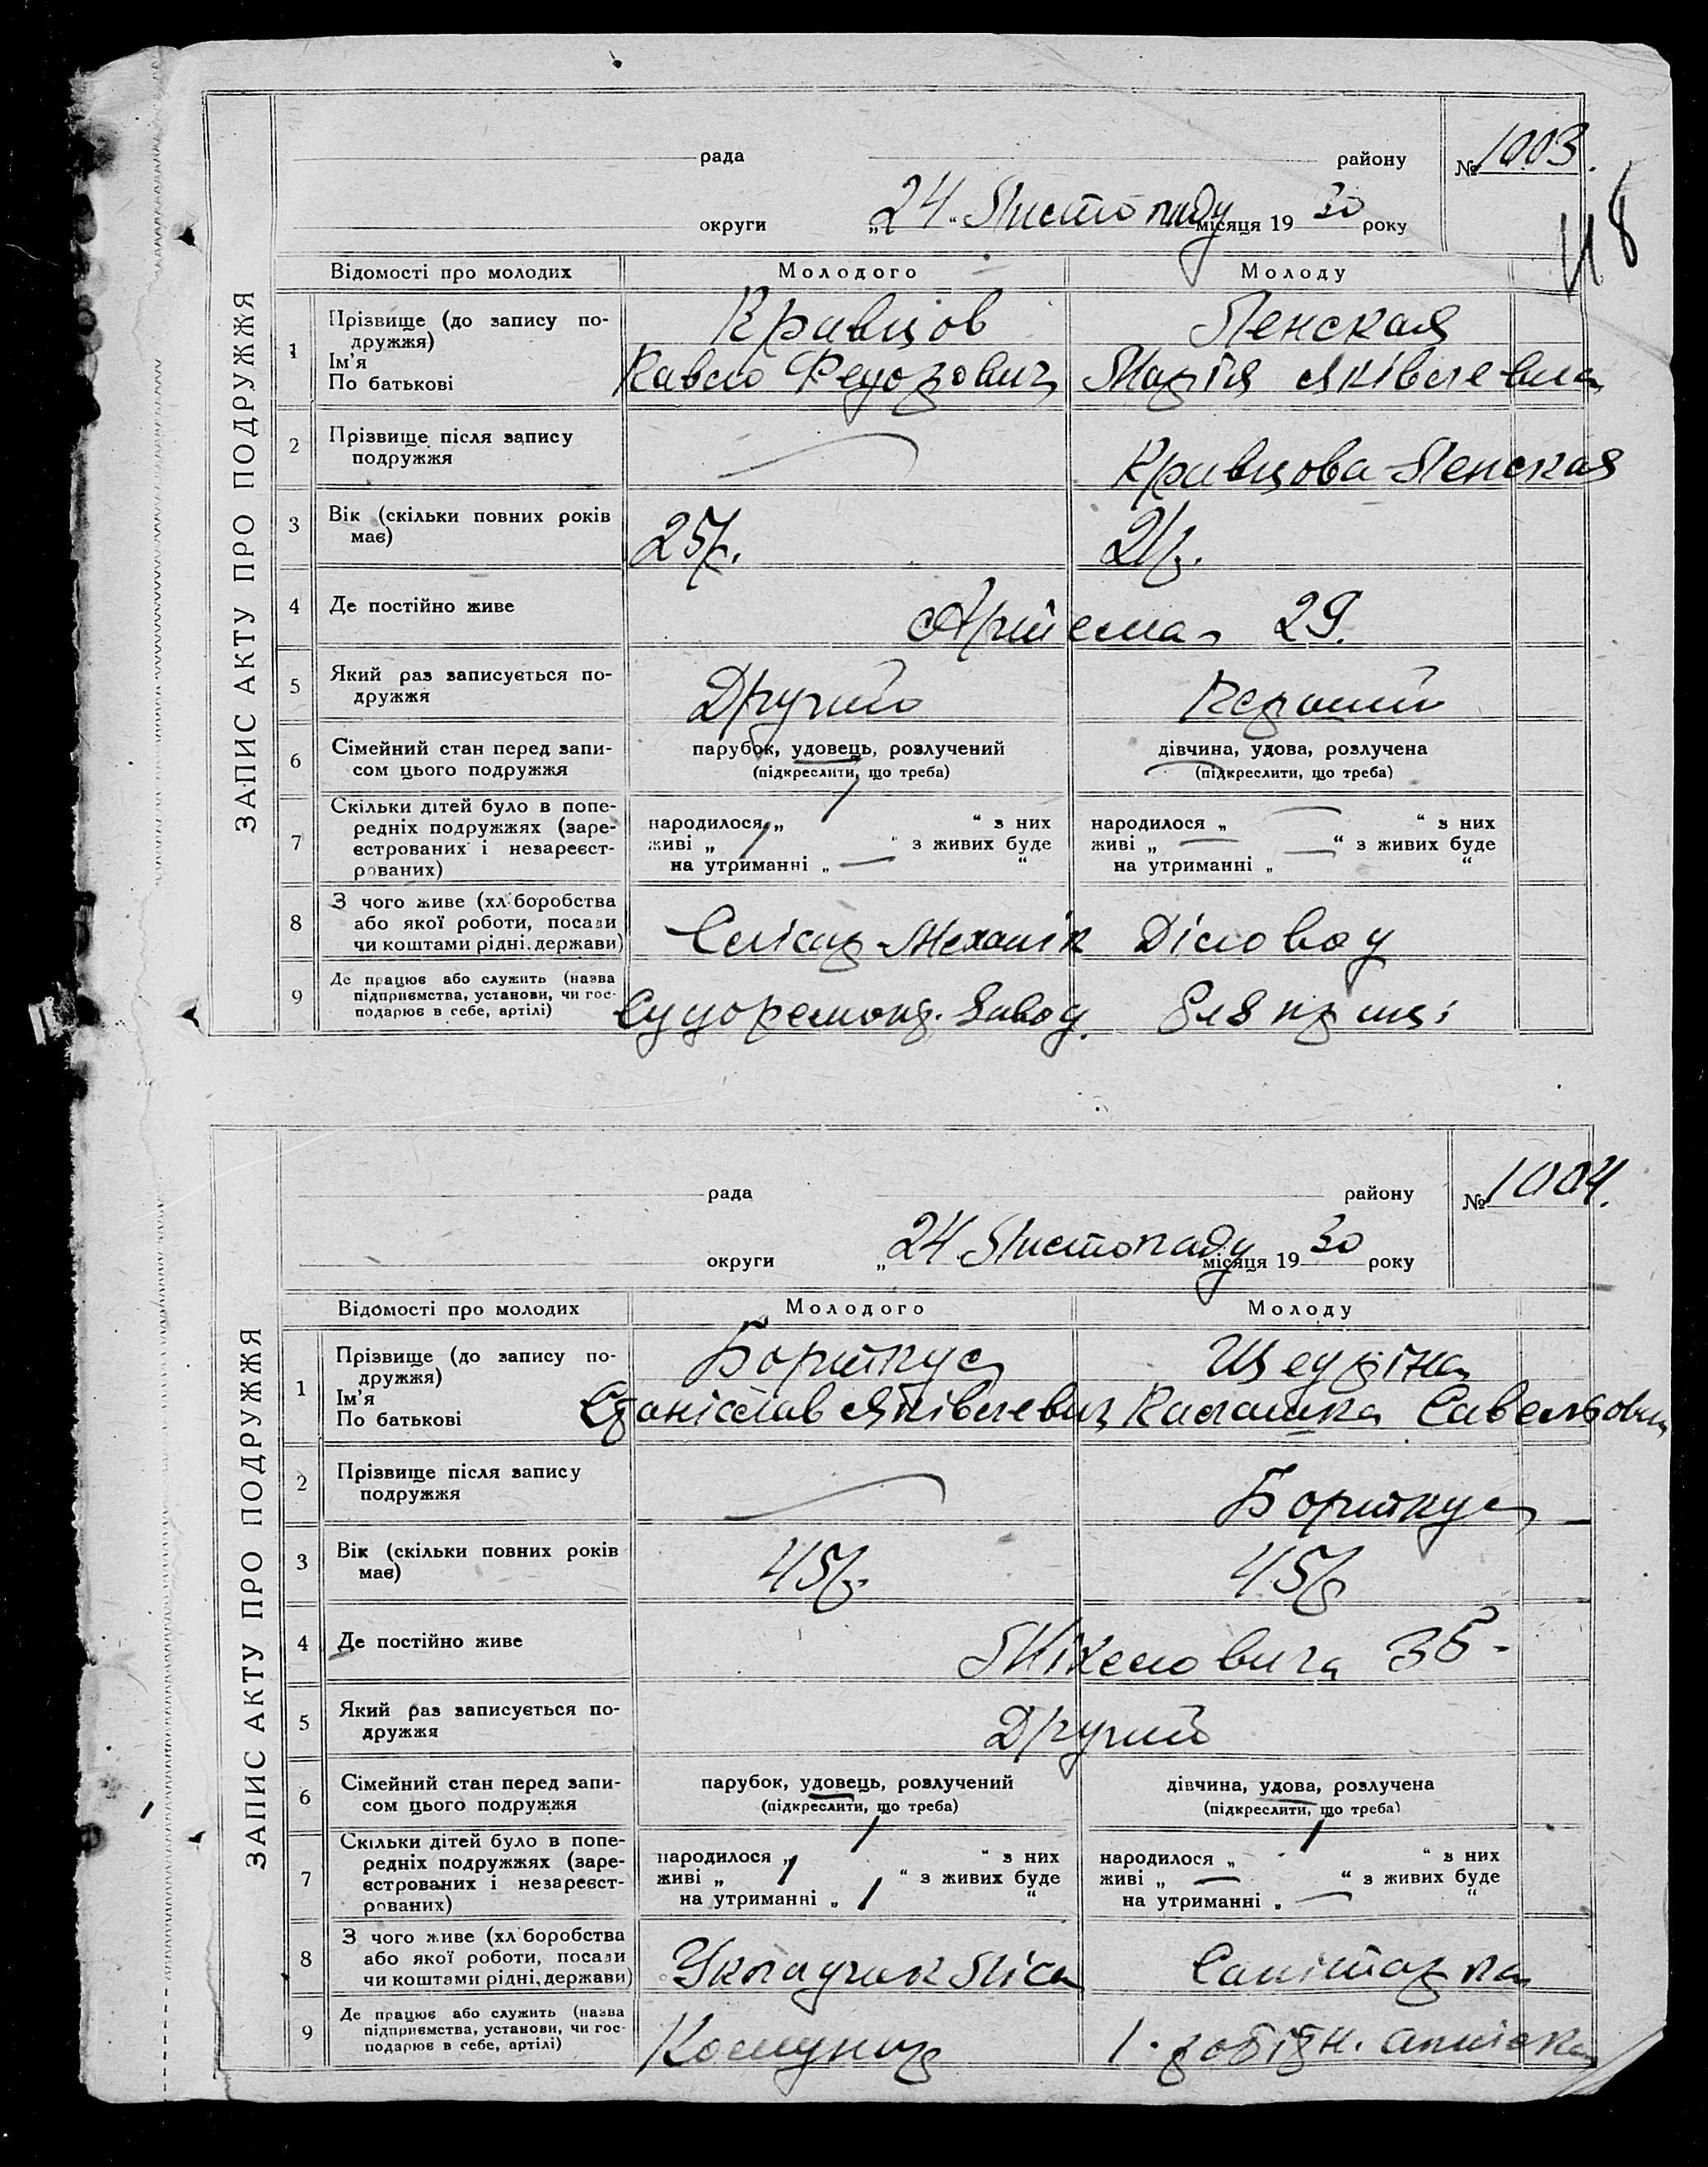 ЗАПИС АКТУ ПРО ПОДРУЖЖЯ
рада району № 1003.
118
округи „24“ Листопаду місяця 19 30 року
Відомості про молодих Молодого Молоду
1 Прізвище (до запису по-
дружжя)
Кравцов Ленская
Ім’я
По батькові
Павло Федорович Марія Яківлевна
2 Прізвище після запису
подружжя
— Кравцова-Ленская
3 Вік (скільки повних років
має)
25 р. 21 р.
4 Де постійно живе Артема 29.
5 Який раз записується по-
дружжя
Другий Перший
6 Сімейний стан перед запи-
сом цього подружжя
парубок, удовець, розлучений дівчина, удова, розлучена
(підкреслити, що треба) (підкреслити, що треба)
7 Скільки дітей було в попе-
редніх подружжях (заре-
єстрованих і незареєст-
рованих)
народилося „ 1 “ з них народилося „ — “ з них
живі „ 1 “ з живих буде живі „ — “ з живих буде
на утриманні „ — “ на утриманні „ — “
8 З чого живе (хліборобства
або якої роботи, посади
чи коштами рідні, держави)
Слісар-Механік Діловод
9 Де працює або служить (назва
підприємства, установи, чи гос-
подарює в себе, артілі)
Судоремонт. Завод.
ЗАПИС АКТУ ПРО ПОДРУЖЖЯ
рада району № 1004.
округи „24 Листопаду місяця 19 30 року
Відомості про молодих Молодого Молоду
1 Прізвище (до запису по-
дружжя)
Борткус Щедріна
Ім’я
По батькові
Станіслав Яківлевич Савельовн
2 Прізвище після запису
подружжя
— Борткус
3 Вік (скільки повних років
має)
45 р. 45 р
4 Де постійно живе 35-
5 Який раз записується по-
дружжя
Другий
6 Сімейний стан перед запи-
сом цього подружжя
парубок, удовець, розлучений дівчина, удова, розлучена
(підкреслити, що треба) (підкреслити, що треба)
7 Скільки дітей було в попе-
редніх подружжях (заре-
єстрованих і незареєст-
рованих)
народилося „ 1 “ з них народилося „ 1 “ з них
живі „ 1 “ з живих буде живі „ — “ з живих буде
на утриманні „ 1 “ на утриманні „ — “
8 З чого живе (хліборобства
або якої роботи, посади
чи коштами рідні, держави)
Укладчик Ліса Санітарка
9 Де працює або служить (назва
підприємства, установи, чи гос-
подарює в себе, артілі)
Комунар 1. робітн. аптека